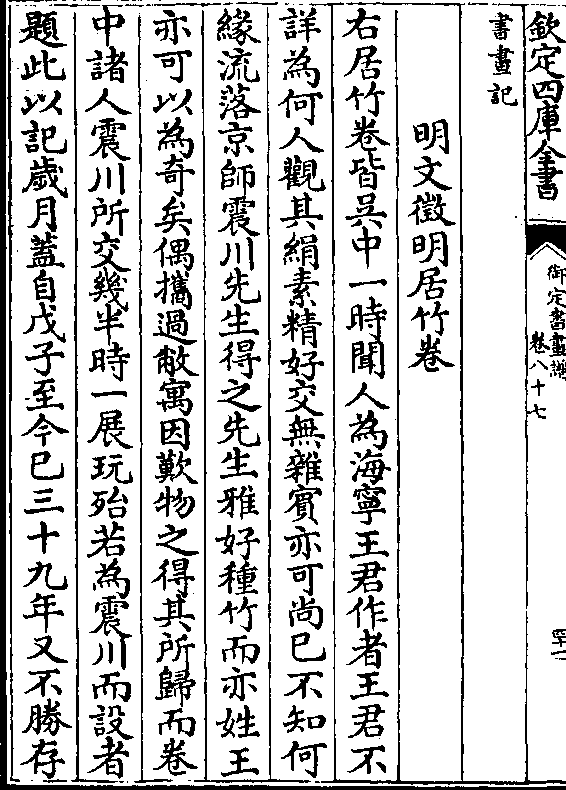 欽定四庫全書
御定書畫譜
卷八十七
四十一
書畫記
明文徵明居竹卷
右居竹卷皆吳中一時聞人為海寧王君作者王君不
詳為何人觀其絹素精好交無雜賓亦可尚已不知何
緣流落京師震川先生得之先生雅好種竹而亦姓王
亦可以為奇矣偶攜過敝寓因歎物之得其所歸而卷
中諸人震川所交幾半時一展玩殆若為震川而設者
題此以記歲月蓋自戊子至今已三十九年又不勝存